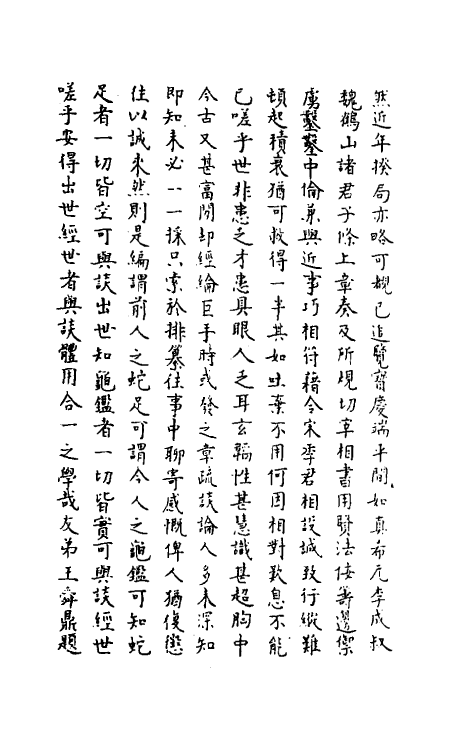 然近年揆局亦略可覩已追覽寶慶端平間如真希元李成叔
魏鶴山諸君子條上章奏及所規切宰相書用賢法佞籌邊禦
虜鑿鑿中倫兼與近事巧相符藉令宋季君相設誠致行縱難
頓起積衰猶可救得一半其如世棄不用何因相對歎息不能
已嗟乎世非患乏才患具眼人乏耳玄韜性甚慧識甚超胸中
今古又甚富閒却經綸巨手時或發之章疏談論人多未深知
即知未必一一採只索於排纂往事中聊寄感慨俾人猶復懲
往以誡來然則是編謂前人之蛇足可謂今人之龜鑑可知蛇
足者一切皆空可與談出世知龜鑑者一切皆實可與談經世
嗟乎安得出世經世者與談體用合一之學哉友弟王舜鼎題